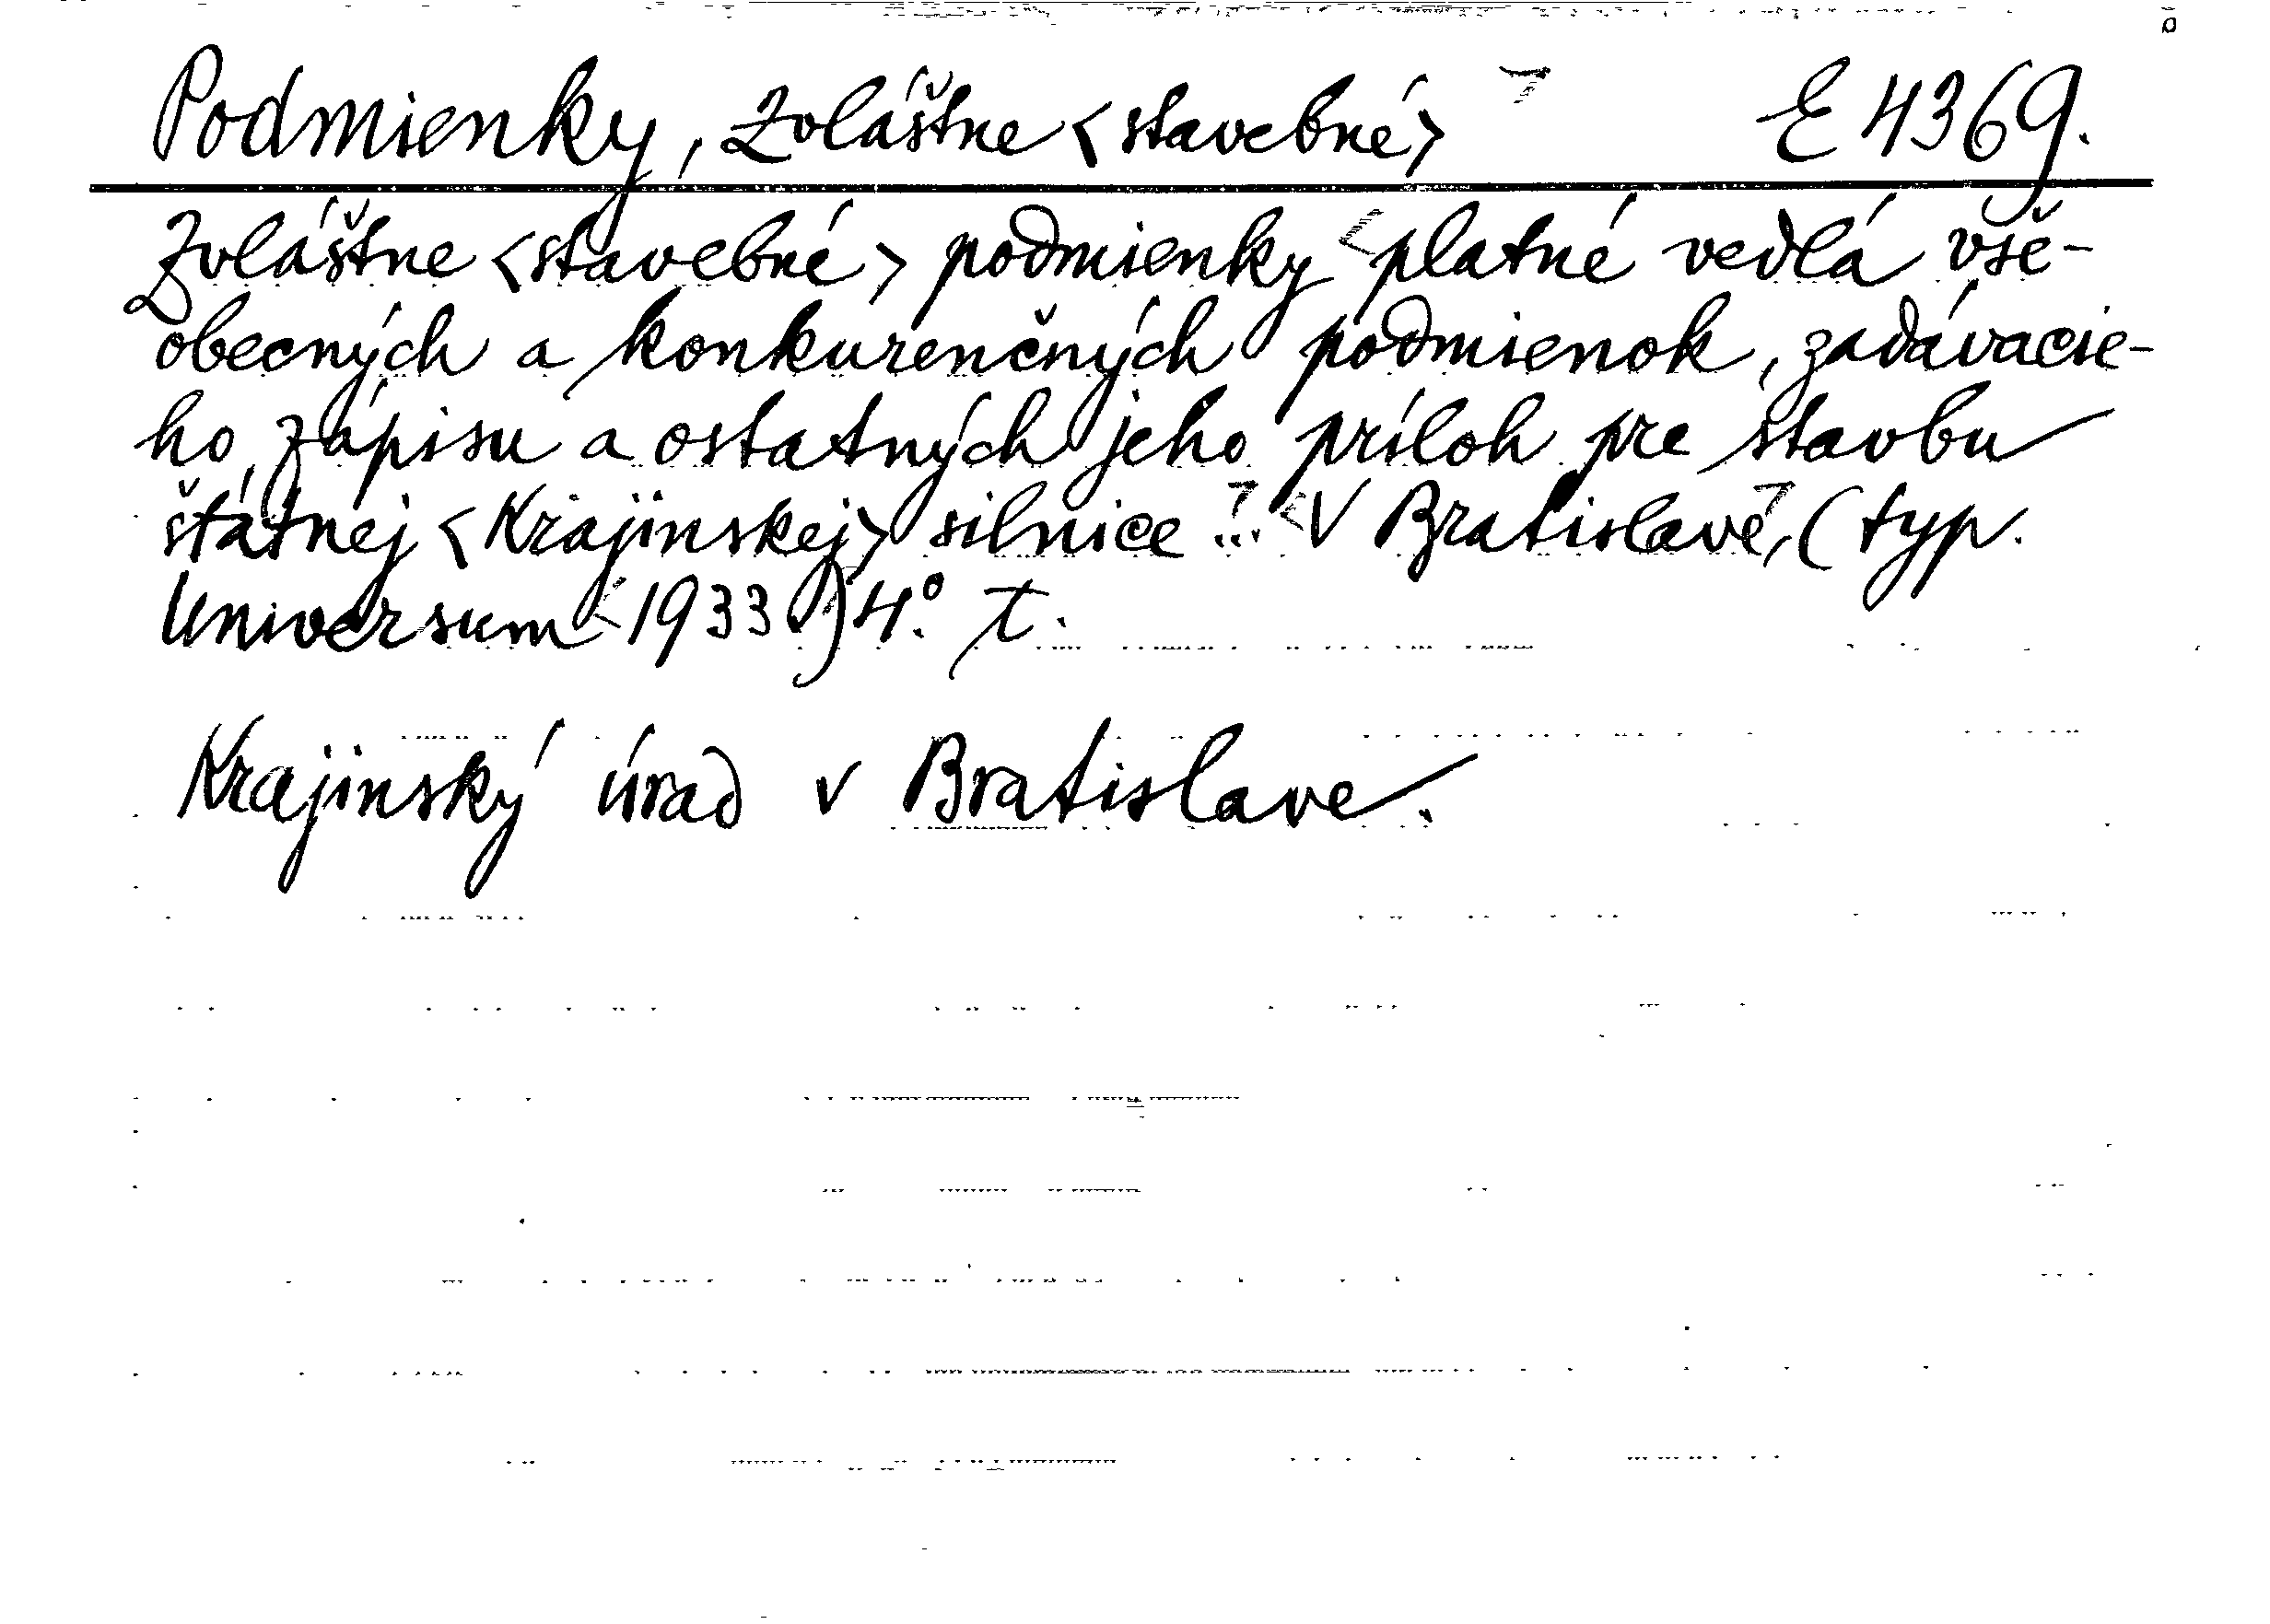 Podmienky, Zvláštne <stavebné> E 4369.
Zvláštne <stavebné> podmienky platné vedlá vše-
obecných a konkurenčných podmienok, zadávacie-
ho zápisu a ostatných jeho príloh pre stavbu
štátnej <Krajinskej> silnice ... V Bratislavě, (typ.
Universum 1933.) 4°. t.
Krajinský úrad v Bratislave.